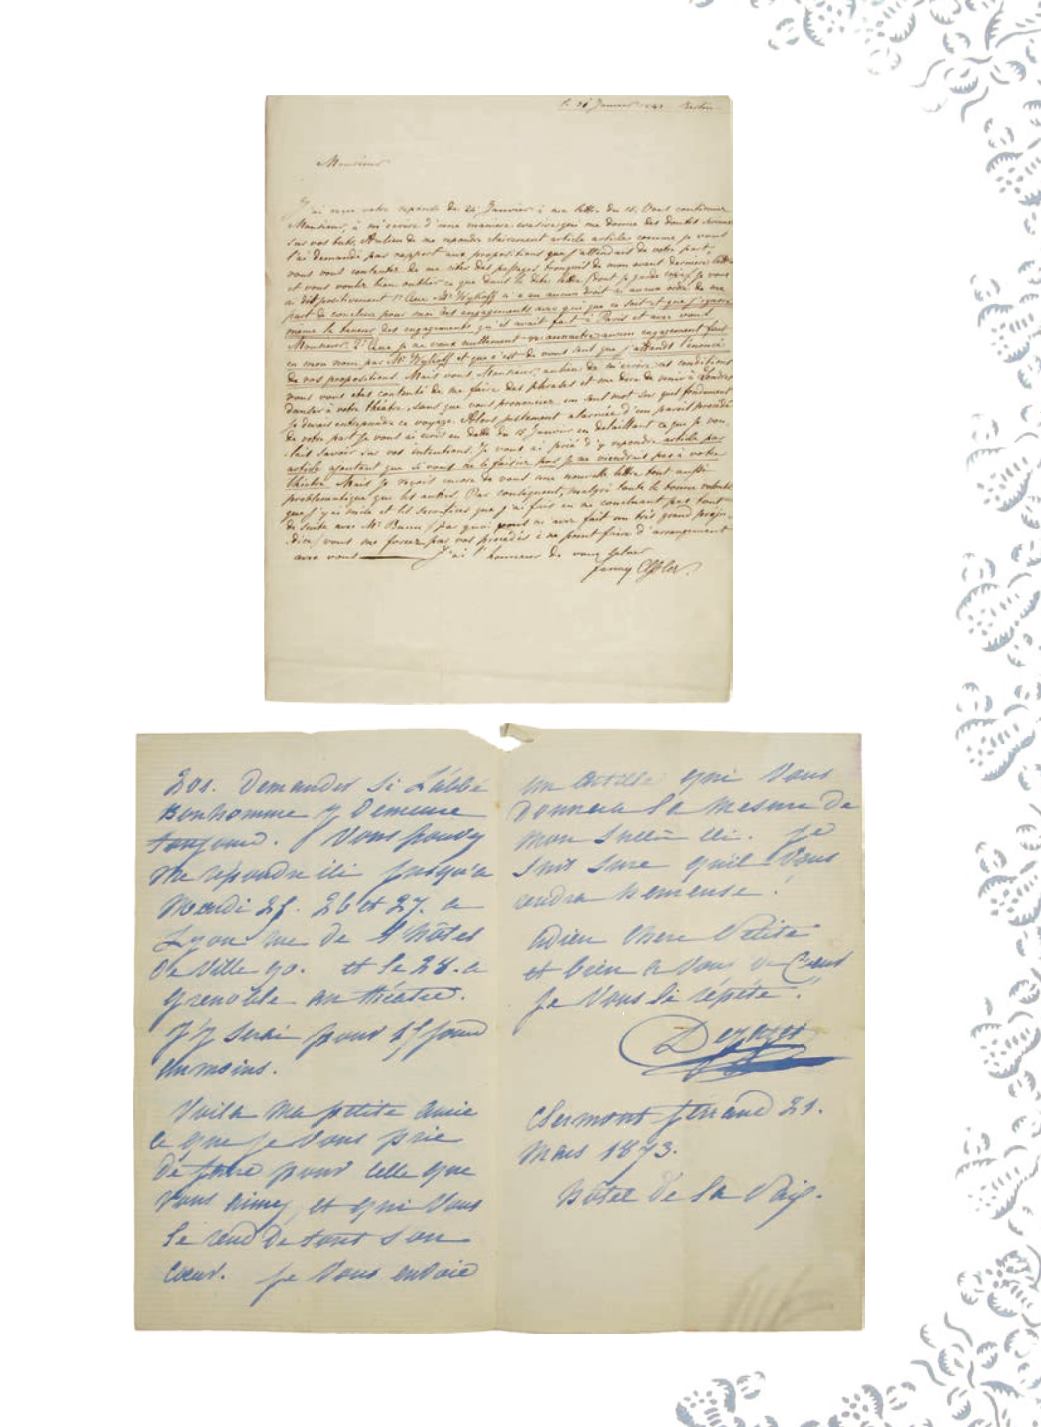 Le 31 Janvier Berlin
Monsieur
J'ai reçu votre réponse du 24 Janvier à ma lettre du 15. Vous continuez
Monsieur, à m'écrire d'une manière évasive, qui me donne des doutes sérieux
sur vos buts. Au lieu de me repondre clairement article article comme je vous
l'ai demandé par rapport aux propositions que j'attendais de votre part
vous vous contentez de me citer des passages tronqués de mon avant dernière lettre
et vous voulez bien oublier ce que dans la dite lettre (dont je garde copie) je vous
ai dit positivement 1º Que Mr Wykoff n'a eu aucun droit ni aucun ordre de ma
part de conclure pour moi des engagements avec qui que ce soit et que j'ignore
même la teneur des engagements qu'il avait fait à Paris et avec vous
Monsieur. 2º Que je ne veux nullement reconnaitre aucun engagement fait
en mon nom par Mr Wykoff et que c'est de vous seul que j'attends l'énoncé
de vos propositions. Mais vous Monsieur, au lieu de m'écrire ces conditions
vous vous etes contenté de me faire des phrases et me dire de venir à Londres
danser à votre théatre, sans que vous prononciez un seul mot sur quel fondement
je devais entreprendre ce voyage. Alors justement alarmée d'un pareil procédé
de votre part je vous ai écrit en datte du 15 Janvier en detaillant ce que je vou-
-lais savoir sur vos intentions. Je vous ai prié d'y repondre article par
article ajoutant que si vous ne le faisiez pas je ne viendrais pas à votre
théatre. Mais je reçois encore de vous une nouvelle lettre tout aussi
problematique que les autres. Par conséquent, malgré toute la bonne volonté
que j'y ai mise et les sacrifices que j'ai fais en ne concluant pas tout
de suite avec Mr Bunn (par quoi vous m'avez fait un très grand préju-
-dice) vous me forcez par vos procédés à ne point faire d'arrangement
avec vous J'ai l'honneur de vous saluer
Fanny Elssler.
201. Demander si L'abbé
Bonhomme y Demeure
toujours. Vous pouvez
me répondre ici jusqu'a
Mardi 25. 26 et 27. a
Lyon rue de L'hôtel
De Ville 90. et le 28. a
Grenoble au théatre.
J'y serai pour 15 jours
au moins.
Voila ma petite amie
ce que je vous prie
de faire pour celle que
vous aimez, et qui vous
le rend De tout son
Coeur. Je vous envoie
un article qui vous
Donnera la mesure De
mon succès ici. Je
suis sure qu'il vous
rendra heureuse!
Adieu chere Petite
et bien a vous de Coeur
Je vous le répète!
Dejazet
Clermont ferrand 21.
Mars 1873.
hôtel De la Paix.